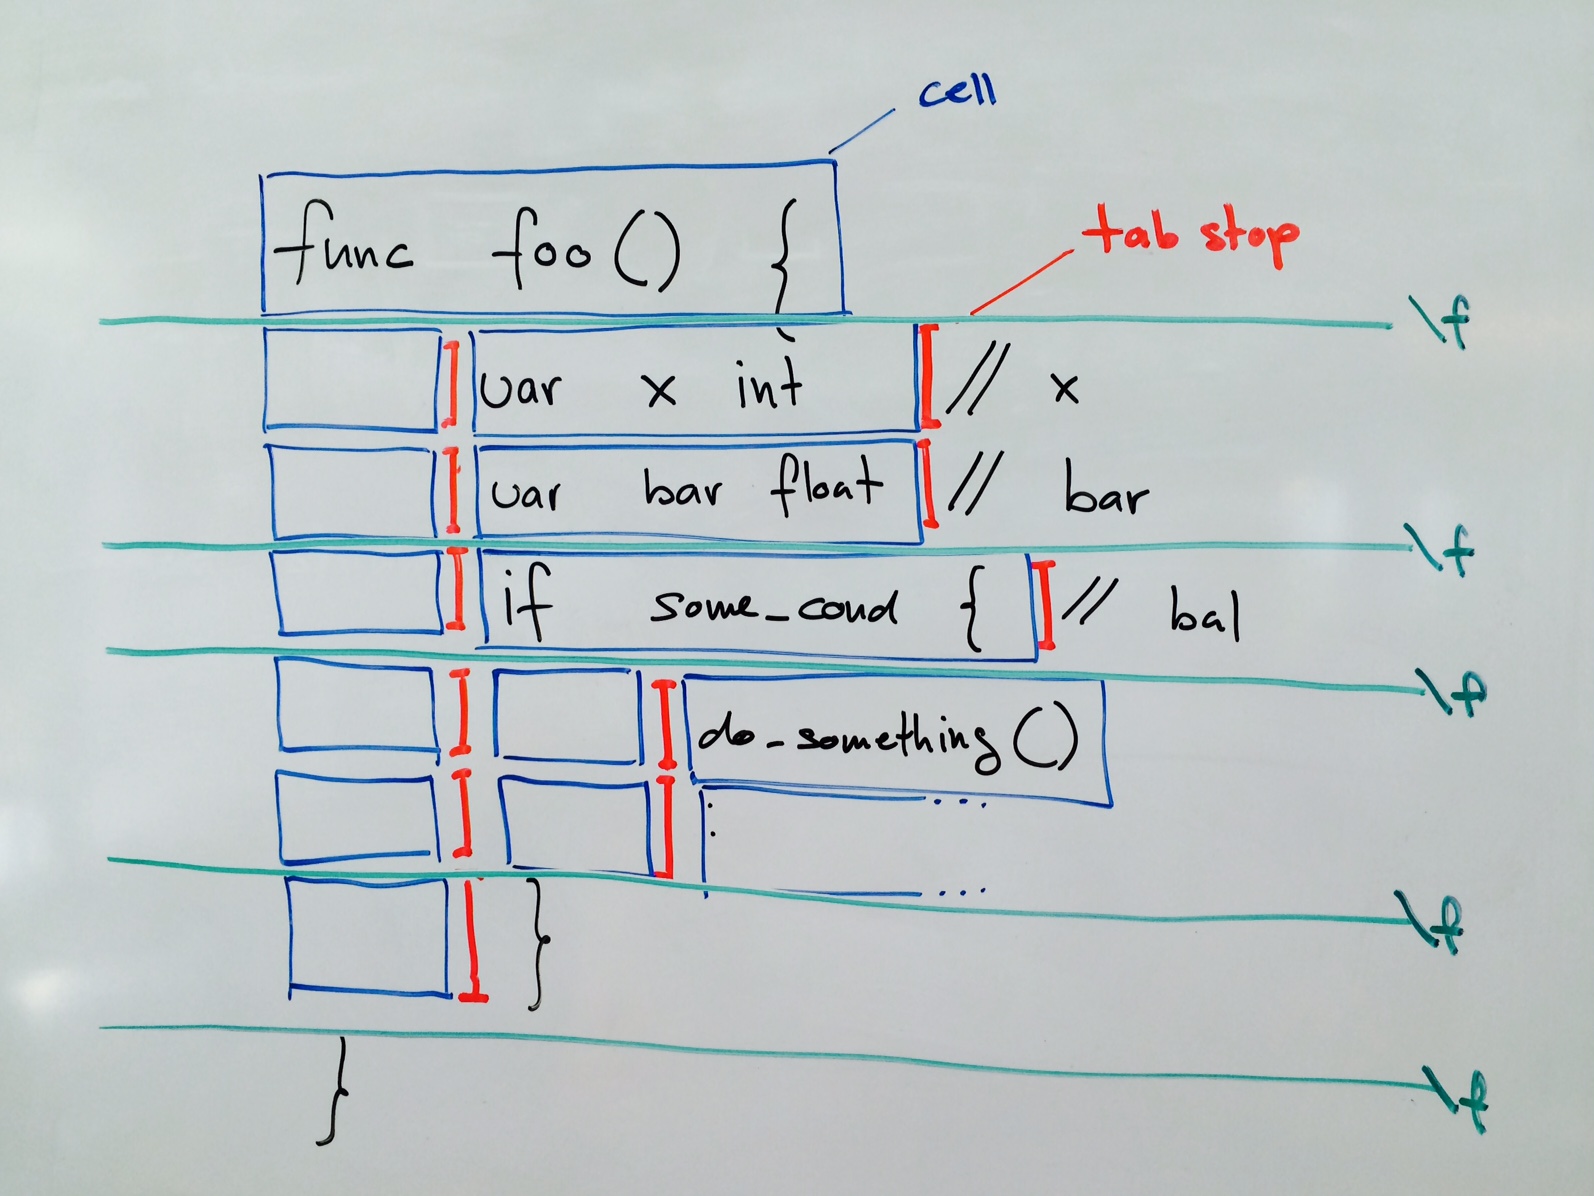 cell
func foo() {
tab stop
\f
var x int // x
var bar float // bar
\f
if some_cond { // bal
\f
do_something()
: ...
...
\f
}
\f
}